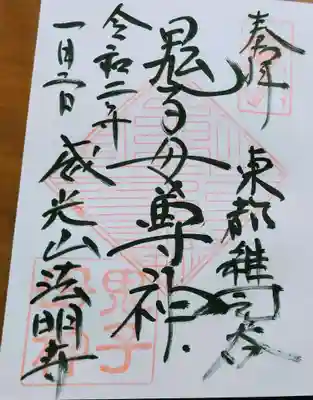 奉拝
東都雑司ヶ谷
鬼子母尊神
令和二年
一月二日
威光山法明寺
鬼子母神